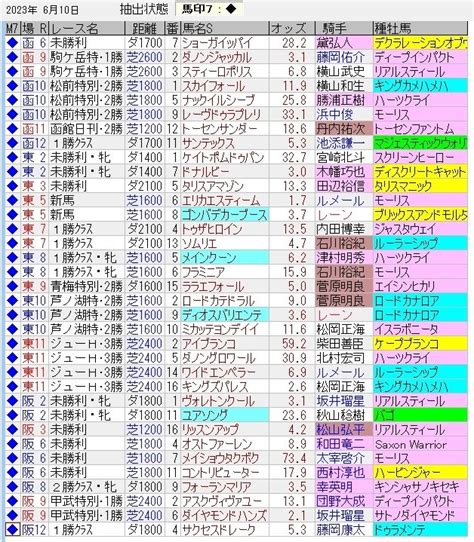 2023年 6月10日 抽出状態 馬印7：◆
M7 場 R レース名 距離 番 馬名S オッズ 騎手 種牡馬
◆ 函 6 未勝利 ダ1700 7 ショーガイッパイ 28.2 黛弘人 デクラレーションオブウ
◆ 函 9 駒ケ岳特・1勝 芝2600 2 ダノンジャッカル 3.1 藤岡佑介 ディープインパクト
◆ 函 9 駒ケ岳特・1勝 芝2600 3 スティーロポリス 6.8 横山武史 リアルスティール
◆ 函10 松前特別・2勝 芝1800 1 スカイフォール 11.9 横山和生 キングカメハメハ
◆ 函10 松前特別・2勝 芝1800 5 ナックイルシーブ 25.8 勝浦正樹 ハーツクライ
◆ 函10 松前特別・2勝 芝1800 9 レーヴドゥラプレリ 33.3 浜中俊 モーリス
◆ 函11 函館日刊・2勝 芝1200 12 トーセンサンダー 18.1 丹内祐次 トーセンファントム
◆ 函12 1勝クラス ダ1700 11 サンテックス 5.3 池添謙一 マジェスティックウォリ
◆ 東 2 未勝利・牝 ダ1400 1 ケイトボムドゥパン 30.7 宮崎北斗 スクリーンヒーロー
◆ 東 2 未勝利・牝 ダ1400 2 ドナルビー 30.1 木幡巧也 ディスクリートキャット
◆ 東 3 未勝利 ダ2100 5 タリスアマゾン 3.3 田辺裕信 タリスマニック
◆ 東 5 新馬 芝1600 6 エリカエスティーム 3.9 ルメール モーリス
◆ 東 5 新馬 芝1600 8 ゴンバデカーブース 3.1 レーン ブリックスアンドモルタ
◆ 東 7 1勝クラス ダ2100 4 トゥザヒロイン 13.5 ジャスタウェイ
◆ 東 7 1勝クラス ダ2100 13 ソムリエ 27.7 石川裕紀 ルーラーシップ
◆ 東 8 1勝クラス・牝 芝1600 5 メインクーン 6.2 津村明秀 ハーツクライ
◆ 東 8 1勝クラス・牝 芝1600 6 フラミニア 15.9 石川裕紀 モーリス
◆ 東 9 青梅特別・2勝 ダ1600 15 ララエフォール 5.0 菅原明良 エイシンヒカリ
◆ 東10 芦ノ湖特・2勝 芝1800 2 ロードカテドラル 9.0 菅原明良 ロードカナロア
◆ 東10 芦ノ湖特・2勝 芝1600 9 ディオスバリエンテ 3.7 レーン ロードカナロア
◆ 東10 芦ノ湖特・2勝 芝1600 10 ミカッテヨンデイイ 104 松岡正海 イスラボニータ
◆ 東11 ジューH・3勝 芝2400 2 アイブランコ 59.2 柴田善臣 ケープブランコ
◆ 東11 ジューH・3勝 芝2400 9 ダノンギャラクロワ 30.9 北村宏司 ハーツクライ
◆ 東11 ジューH・3勝 芝2400 14 ワイドエンペラー 6.9 ルメール ルーラーシップ
◆ 東11 ジューH・3勝 芝2400 16 キングズパレス 6.2 松岡正海 キングカメハメハ
◆ 阪 2 未勝利・牝 ダ1800 1 ヴォレトンクール 3.1 坂井瑠星 リアルスティール
◆ 阪 2 未勝利・牝 ダ1800 11 ユアソング 23.6 秋山稔樹 バゴ
◆ 阪 3 未勝利 ダ1200 16 リッスンアップ 4.3 松山弘平 キズナ
◆ 阪 5 未勝利 芝1800 4 オストファーレン 8.9 和田竜二 Saxon Warrior
◆ 阪 6 未勝利 芝1600 3 モーリス 7.3 太宰啓介 モーリス
◆ 阪 6 未勝利 芝1600 11 コントリビューター 27.3 西村淳也 ハービンジャー
◆ 阪 8 1勝クラス 芝2400 2 フォーランマリア 3.5 幸英明 キンシャサノキセキ
◆ 阪 9 甲武特別・1勝 芝2400 2 アスクヴィヴァユー 18.1 団野大成 ディープインパクト
◆ 阪 9 甲武特別・1勝 芝2400 5 ダイヤモンドハンズ 2.1 坂井瑠星 サトノダイヤモンド
◆ 阪12 1勝クラス ダ1800 4 サクセスドレーク 5.9 藤岡康太 ドゥラメンテ